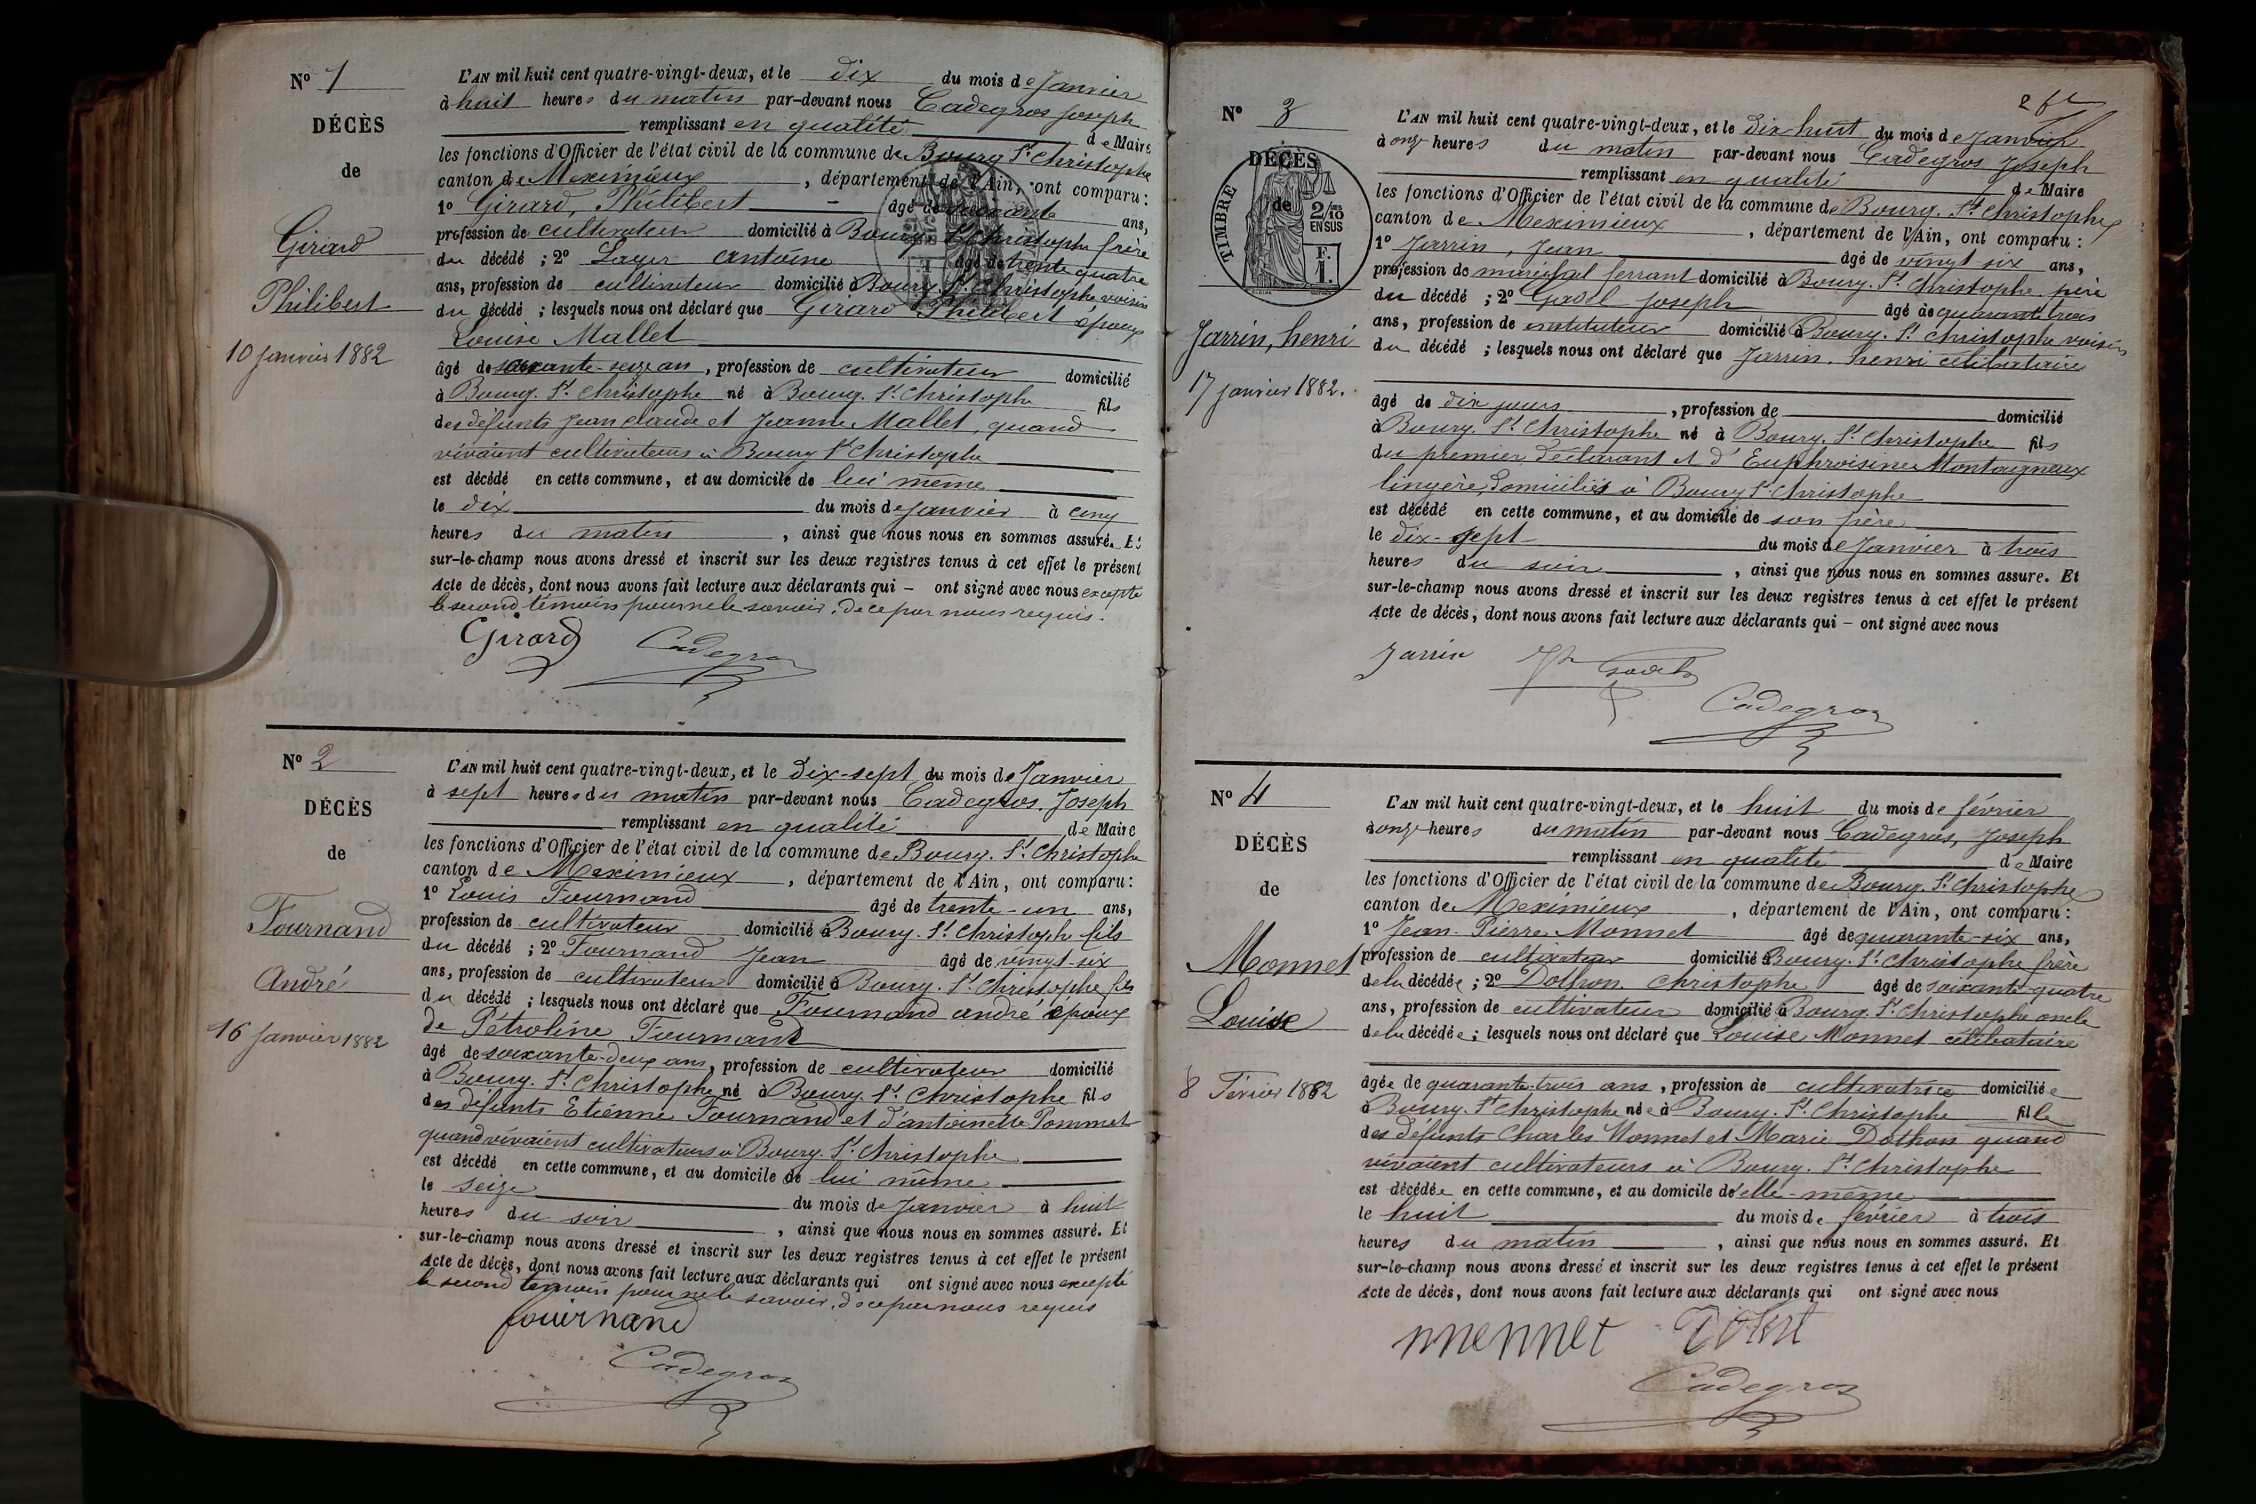 N° 1
DÉCÈS
de
Girard
Philibert
10 janvier 1882
L'AN mil huit cent quatre-vingt-deux, et le dix du mois de Janvier
à huit heures du matin par-devant nous Cadegros Joseph
remplissant en qualité de Maire
les fonctions d'Officier de l'état civil de la commune de Bourg St Christophe
canton de Meximieux, département de l'Ain, ont comparu :
1° Girard, Philibert âgé de soixante ans,
profession de cultivateur domicilié à Bourg St Christophe frère
du décédé ; 2° Layer antoine âgé de trente quatre
ans, profession de cultivateur domicilié à Bourg St Christophe voisin
du décédé ; lesquels nous ont déclaré que Girard Philibert époux
Louise Mallet
âgé de soixante-seize an, profession de cultivateur domicilié
à Bourg. St Christophe né à Bourg. St Christophe fils
des défunts Jean claude et Jeanne Mallet, quand
vivaient cultivateurs à Bourg St Christophe
est décédé en cette commune, et au domicile de lui même
le dix du mois de janvier à cinq
heures du matin, ainsi que nous nous en sommes assuré. Et
sur-le-champ nous avons dressé et inscrit sur les deux registres tenus à cet effet le présent
Acte de décès, dont nous avons fait lecture aux déclarants qui – ont signé avec nous excepté
le second témoins pour ne le savoir, de ce par nous requis.
Girard Cadegros
N° 2
DÉCÈS
de
Fournand
André
16 Janvier 1882
L'AN mil huit cent quatre-vingt-deux, et le dix-sept du mois de Janvier
à sept heures du matin par-devant nous Cadegros, Joseph
remplissant en qualité de Maire
les fonctions d'Officier de l'état civil de la commune de Bourg. St Christophe
canton de Meximieux, département de l'Ain, ont comparu :
1° Louis Fournand âgé de trente-un ans,
profession de cultivateur domicilié à Bourg. St Christophe fils
du décédé ; 2° Fournand Jean âgé de vingt-six
ans, profession de cultivateur domicilié à Bourg. St Christophe fils
du décédé ; lesquels nous ont déclaré que Fournand andré époux
de Pétroline Fournand
âgé de soixante-deux ans, profession de cultivateur domicilié
à Bourg. St Christophe né à Bourg. St Christophe fils
des défunts Etienne Fournand et d'antoinette Pommet
quand vivaient cultivateurs à Bourg. St Christophe
est décédé en cette commune, et au domicile de lui même
le seize du mois de Janvier à huit
heures du soir, ainsi que nous nous en sommes assuré. Et
sur-le-champ nous avons dressé et inscrit sur les deux registres tenus à cet effet le présent
Acte de décès, dont nous avons fait lecture aux déclarants qui ont signé avec nous excepté
le second temoin pour ne le savoir, de ce par nous requis
fournand
Cadegros
N° 3
DÉCÈS
de
TIMBRE
2/10
EN SUS
F.
Jarrin, henri
17 janvier 1882.
L'AN mil huit cent quatre-vingt-deux, et le dix-huit du mois de Janvier
à onze heures du matin par-devant nous Cadegros Joseph
remplissant en qualité de Maire
les fonctions d'Officier de l'état civil de la commune de Bourg. St Christophe
canton de Meximieux, département de l'Ain, ont comparu :
1° Jarrin, Jean âgé de vingt six ans,
profession de maréchal ferrant domicilié à Bourg. St Christophe. père
du décédé ; 2° Godel Joseph âgé de quarante trois
ans, profession de instituteur domicilié à Bourg. St Christophe voisin
du décédé ; lesquels nous ont déclaré que Jarrin, henri célibataire
âgé de dix jours, profession de domicilié
à Bourg. St Christophe né à Bourg. St Christophe fils
du premier déclarant et d'Euphroisine Montaigneux
lingère, domiciliés à Bourg St Christophe
est décédé en cette commune, et au domicile de son père
le dix-sept du mois de Janvier à trois
heures du soir, ainsi que nous nous en sommes assuré. Et
sur-le-champ nous avons dressé et inscrit sur les deux registres tenus à cet effet le présent
Acte de décès, dont nous avons fait lecture aux déclarants qui – ont signé avec nous
Jarrin Jh Godel
Cadegros
N° 4
DÉCÈS
de
Monnet
Louise
8 Février 1882
L'AN mil huit cent quatre-vingt-deux, et le huit du mois de février
à onze heures du matin par-devant nous Cadegros, Joseph
remplissant en qualité de Maire
les fonctions d'Officier de l'état civil de la commune de Bourg. St Christophe
canton de Meximieux, département de l'Ain, ont comparu :
1° Jean-Pierre Monnet âgé de quarante-six ans,
profession de cultivateur domicilié à Bourg. St Christophe frère
de la décédée ; 2° Dothon. Christophe âgé de soixante-quatre
ans, profession de cultivateur domicilié à Bourg. St Christophe oncle
de la décédée ; lesquels nous ont déclaré que Louise Monnet célibataire
âgée de quarante-trois ans, profession de cultivatrice domiciliée
à Bourg. St Christophe née à Bourg. St Christophe fille
des défunts Charles Monnet et Marie Dothon quand
vivaient cultivateurs à Bourg. St Christophe
est décédée en cette commune, et au domicile d'elle-même
le huit du mois de février à trois
heures du matin, ainsi que nous nous en sommes assuré. Et
sur-le-champ nous avons dressé et inscrit sur les deux registres tenus à cet effet le présent
Acte de décès, dont nous avons fait lecture aux déclarants qui ont signé avec nous
monnet
Cadegros